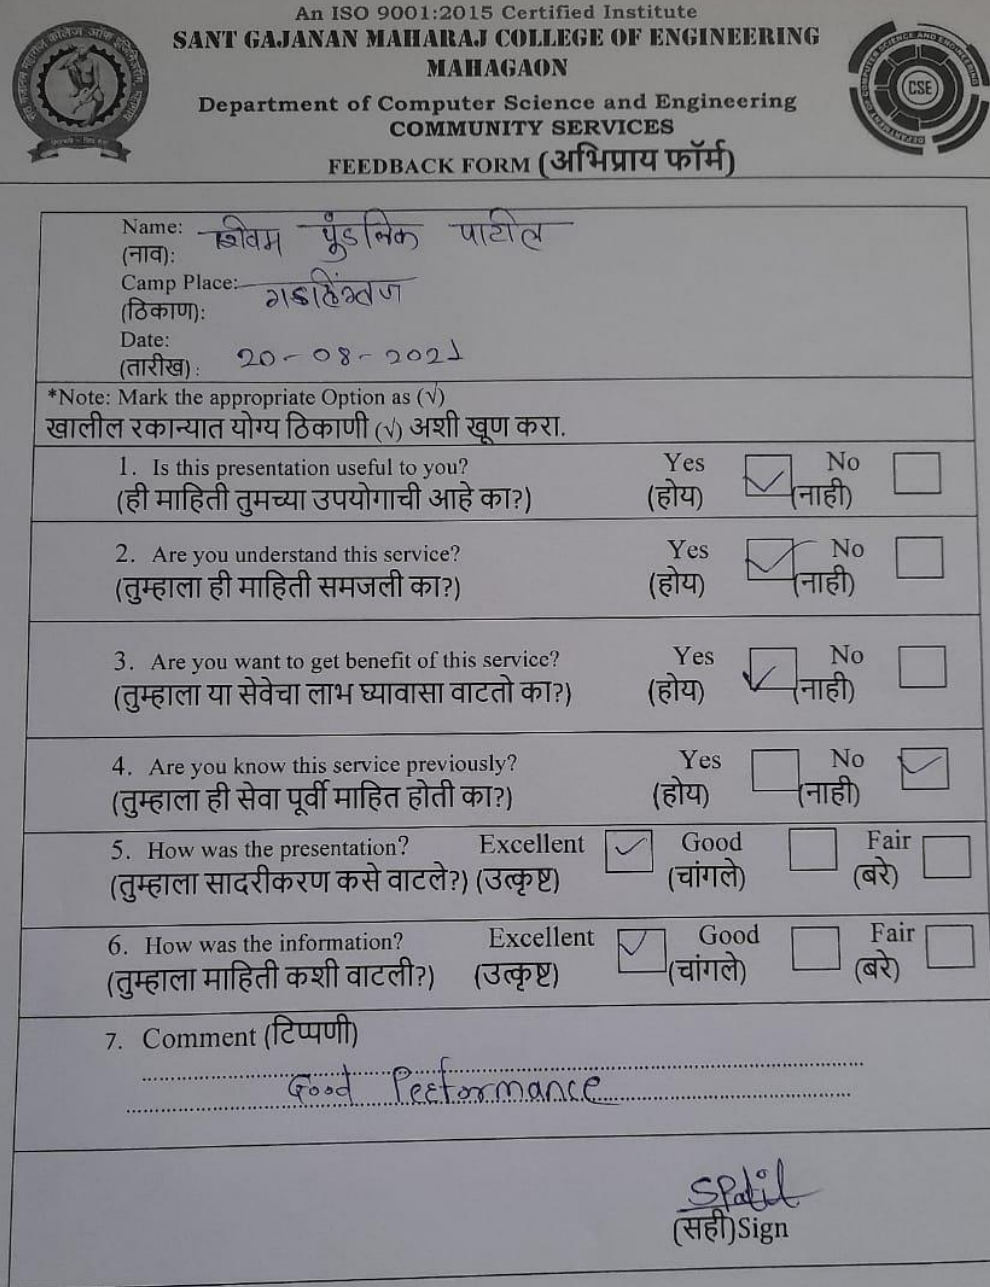 An ISO 9001:2015 Certified Institute
SANT GAJANAN MAHARAJ COLLEGE OF ENGINEERING
MAHAGAON
Department of Computer Science and Engineering
COMMUNITY SERVICES
FEEDBACK FORM (अभिप्राय फॉर्म)
CSE
Name: शिवम पुंडलिक पाटील
(नाव):
Camp Place: गडहिंग्लज
(ठिकाण):
Date:
(तारीख): 20-08-2021
*Note: Mark the appropriate Option as (√)
खालील रकान्यात योग्य ठिकाणी (√) अशी खूण करा.
1. Is this presentation useful to you? Yes ✓ No
(ही माहिती तुमच्या उपयोगाची आहे का?) (होय) (नाही)
2. Are you understand this service? Yes ✓ No
(तुम्हाला ही माहिती समजली का?) (होय) (नाही)
3. Are you want to get benefit of this service? Yes ✓ No
(तुम्हाला या सेवेचा लाभ घ्यावासा वाटतो का?) (होय) (नाही)
4. Are you know this service previously? Yes No ✓
(तुम्हाला ही सेवा पूर्वी माहित होती का?) (होय) (नाही)
5. How was the presentation? Excellent ✓ Good Fair
(तुम्हाला सादरीकरण कसे वाटले?) (उत्कृष्ट) (चांगले) (बरे)
6. How was the information? Excellent ✓ Good Fair
(तुम्हाला माहिती कशी वाटली?) (उत्कृष्ट) (चांगले) (बरे)
7. Comment (टिप्पणी)
Good Performance
SPatil
(सही)Sign